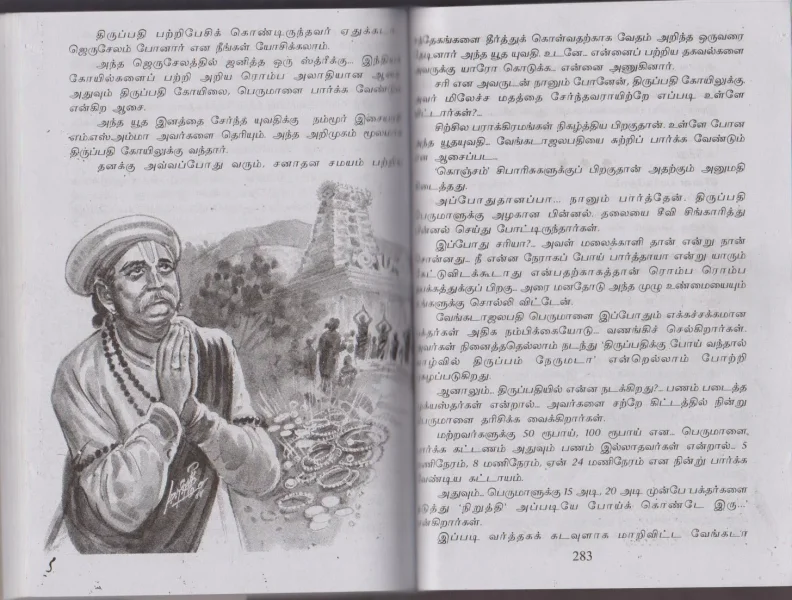 திருப்பதி பற்றிபேசிக் கொண்டிருந்தவர் ஏதுக்கடா
ஜெருசேலம் போனார் என நீங்கள் யோசிக்கலாம்.
அந்த ஜெருசேலத்தில் ஜனித்த ஒரு ஸ்த்ரீக்கு...
கோயில்களைப் பற்றி அறிய ரொம்ப அலாதியான ஆசை
அதுவும் திருப்பதி கோயிலை, பெருமாளை பார்க்க வேண்டும்
என்கிற ஆசை.
அந்த யூத இனத்தை சேர்ந்த யுவதிக்கு நம்மூர்
எம்.எஸ்.அம்மா அவர்களை தெரியும். அந்த அறிமுகம்
திருப்பதி கோயிலுக்கு வந்தார்.
தனக்கு அவ்வப்போது வரும். சனாதன சமயம்
தீர்த்துக் கொள்வதற்காக வேதம் அறிந்த ஒருவரை
அந்த யூத யுவதி. உடனே.. என்னைப் பற்றிய தகவல்களை
யாரோ கொடுக்க.. என்னை அணுகினார்.
சரி என அவருடன் நானும் போனேன், திருப்பதி கோயிலுக்கு.
அவர் மிலேச்ச மதத்தை சேர்ந்தவராயிற்றே எப்படி உள்ளே
விட்டார்கள்?..
சிற்சில பராக்கிரமங்கள் நிகழ்த்திய பிறகுதான். உள்ளே போன
அந்த யூதயுவதி.. வேங்கடாஜலபதியை சுற்றிப் பார்க்க வேண்டும்
என ஆசைப்பட..
'கொஞ்சம்' சிபாரிசுகளுக்குப் பிறகுதான் அதற்கும் அனுமதி
கிடைத்தது.
அப்போதுதானப்பா... நானும் பார்த்தேன். திருப்பதி
பெருமாளுக்கு அழகான பின்னல். தலையை சீவி சிங்காரித்து
பின்னல் செய்து போட்டிருந்தார்கள்.
இப்போது சரியா?.. அவள் மலைக்காளி தான் என்று நான்
சொன்னது.. நீ என்ன நேராகப் போய் பார்த்தாயா என்று யாரும்
கேட்டுவிடக்கூடாது என்பதற்காகத்தான் ரொம்ப ரொம்ப
பிறகு.. அரை மனதோடு அந்த முழு உண்மையையும்
உங்களுக்கு சொல்லி விட்டேன்.
வேங்கடாஜலபதி பெருமாளை இப்போதும் எக்கச்சக்கமான
பக்தர்கள் அதிக நம்பிக்கையோடு... வணங்கிச் செல்கிறார்கள்.
அவர்கள் நினைத்ததெல்லாம் நடந்து 'திருப்பதிக்கு போய் வந்தால்
வாழ்வில் திருப்பம் நேருமடா' என்றெல்லாம் போற்றி
புகழப்படுகிறது.
ஆனாலும்.. திருப்பதியில் என்ன நடக்கிறது?.. பணம் படைத்த
என்றால்.. அவர்களை சற்றே கிட்டத்தில் நின்று
பெருமானை தரிசிக்க வைக்கிறார்கள்.
மற்றவர்களுக்கு 50 ரூபாய், 100 ரூபாய் என.. பெருமாளை,
பார்க்க கட்டணம் அதுவும் பணம் இல்லாதவர்கள் என்றால்.. 5
மணிநேரம், 8 மணிநேரம், ஏன் 24 மணிநேரம் என நின்று பார்க்க
வேண்டிய கட்டாயம்.
அதுவும்.. பெருமாளுக்கு 15 அடி, 20 அடி முன்பே பக்தர்களை
தடுத்து 'நிறுத்தி' அப்படியே போய்க் கொண்டே இரு...'
என்கிறார்கள்.
இப்படி வர்த்தகக் கடவுளாக மாறிவிட்ட வேங்கடா
283